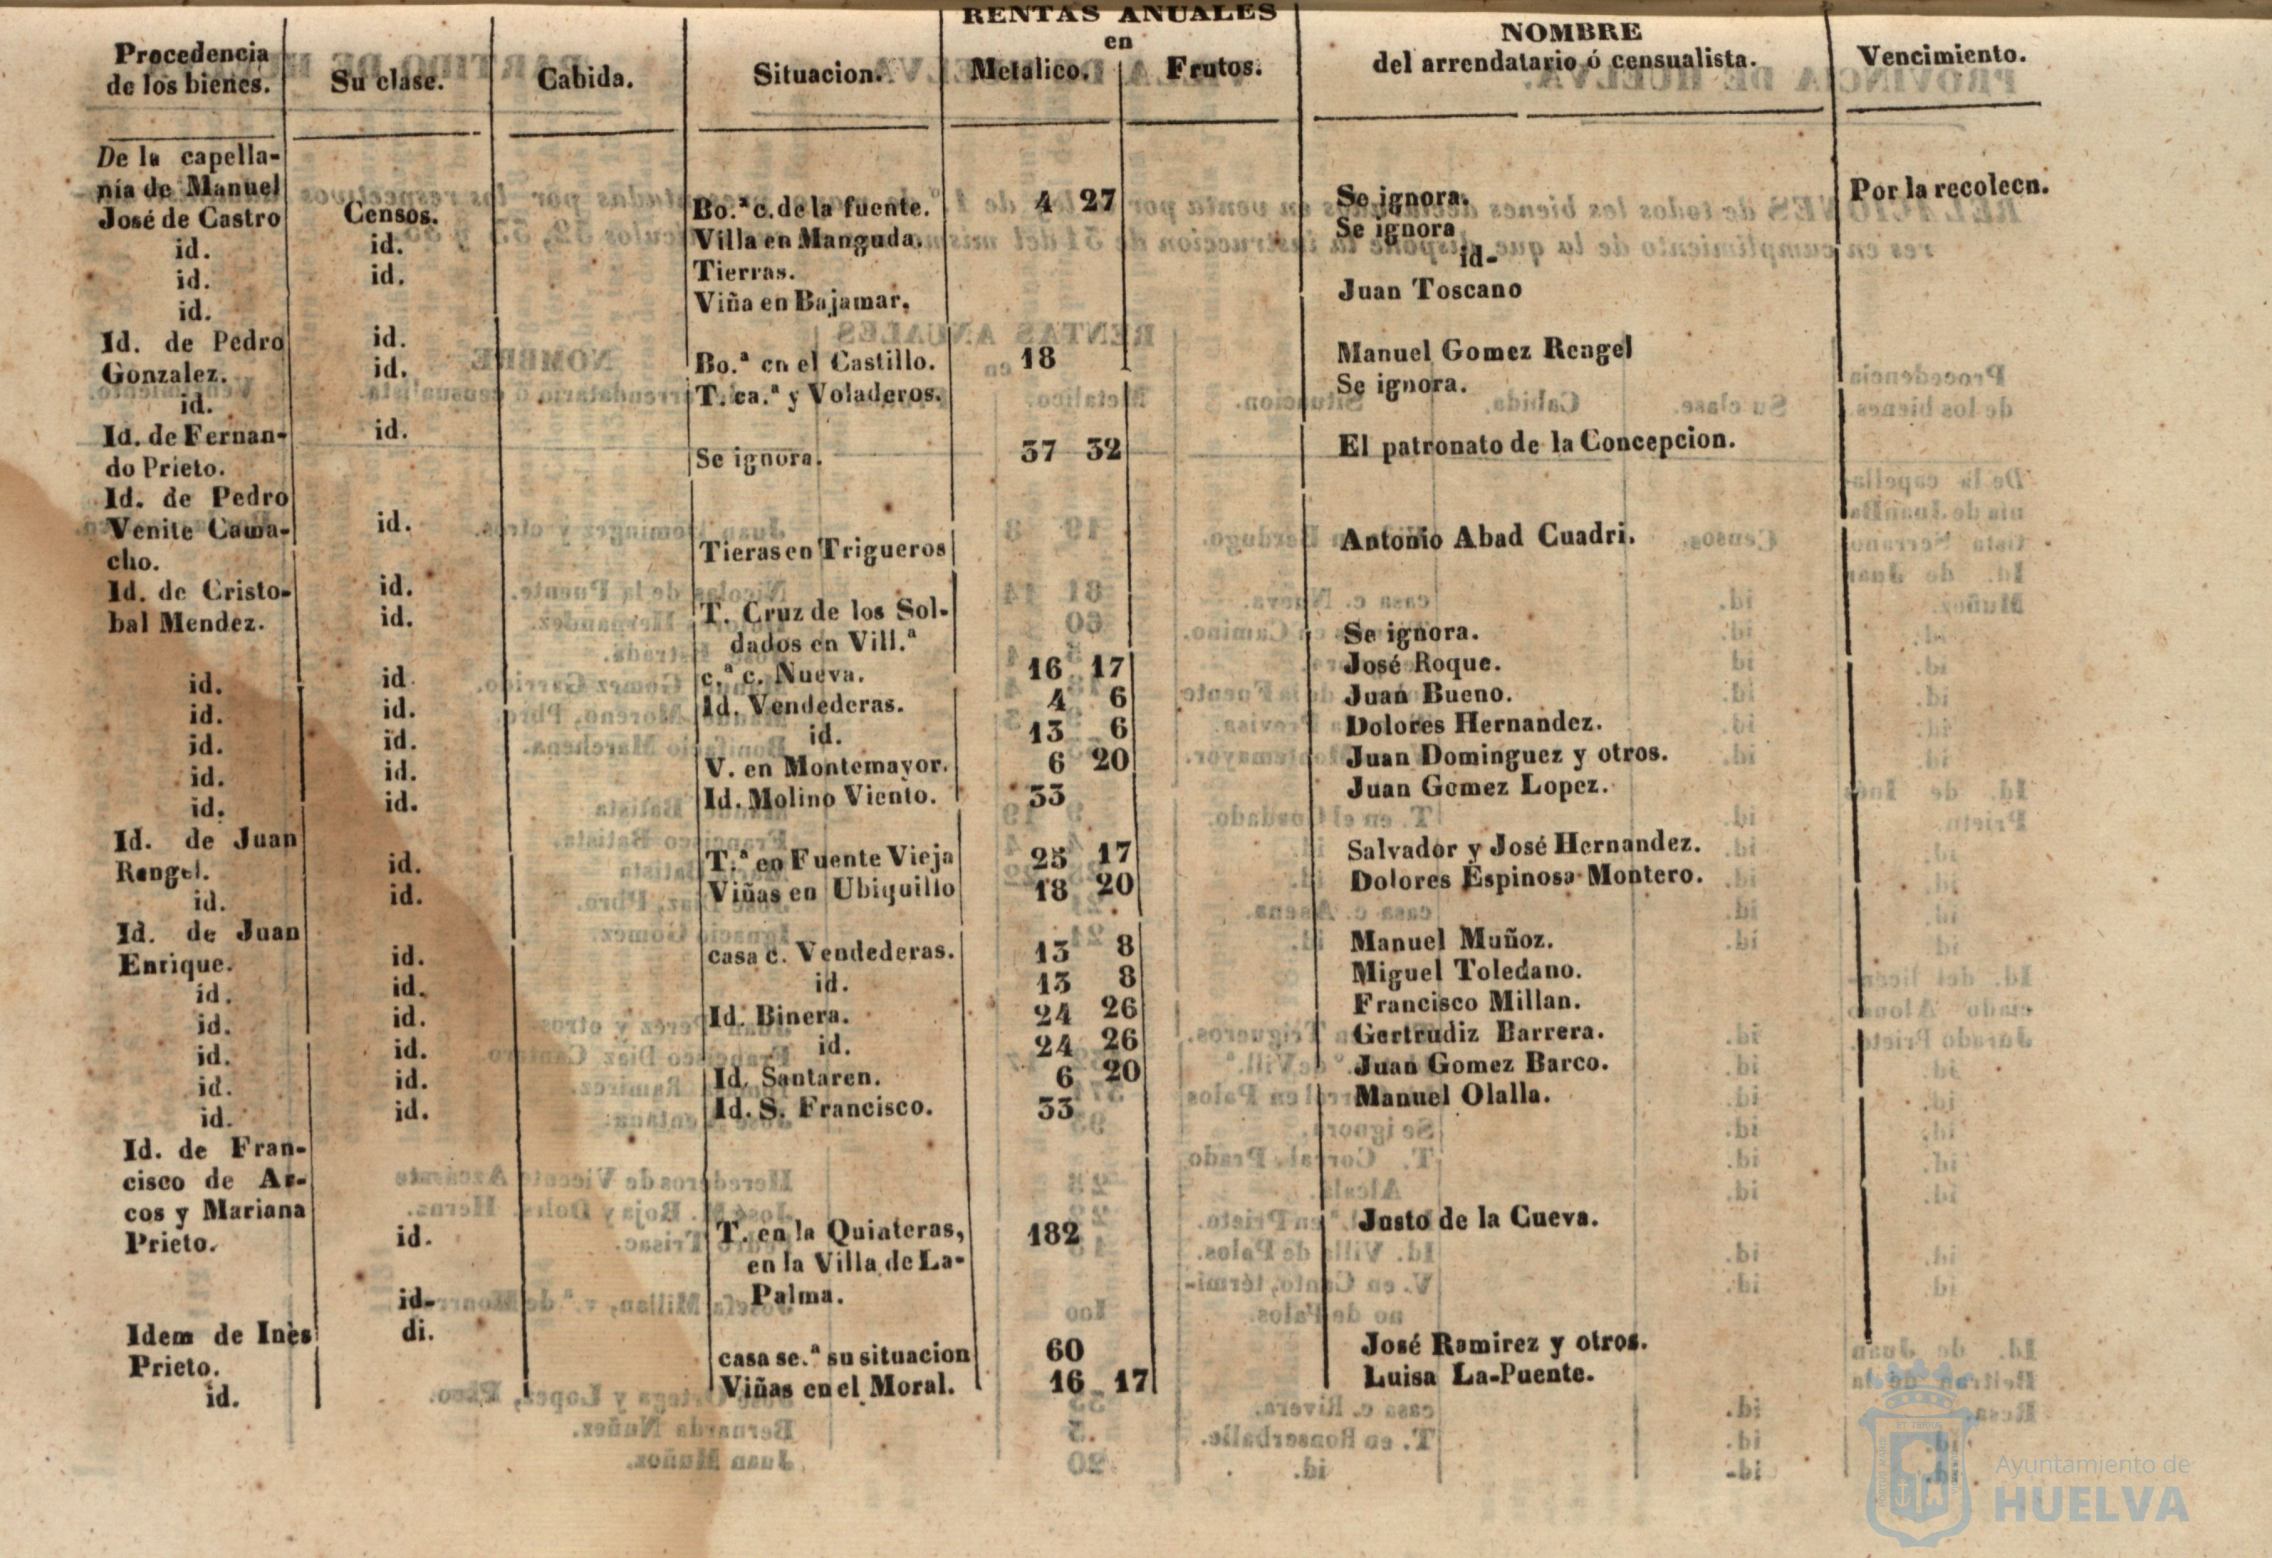 RENTAS ANUALES
en
Procedencia de los bienes. Su clase. Cabida. Situacion. Metalico. Frutos. NOMBRE del arrendatario ó censualista. Vencimiento.
De la capella-
nía de Manuel Por la recolecn.
José de Castro Censos. Bo.ª c. de la fuente. 4 27 Se ignora.
id. id. Villa en Manguda. Se ignora
id. id. Tierras. id-
id. Viña en Bajamar. Juan Toscano
Id. de Pedro id.
Gonzalez. id. Bo.ª en el Castillo. 18 Manuel Gomez Rengel
id. T. ca.ª y Voladeros. Se ignora.
Id. de Fernan- id.
do Prieto. Se ignora. 37 32 El patronato de la Concepcion.
Id. de Pedro
Venite Cama- id.
cho. Tieras en Trigueros Antonio Abad Cuadri.
Id. de Cristo- id.
bal Mendez. id. T. Cruz de los Sol-
dados en Vill.ª Se ignora.
id. id c.ª c. Nueva. 16 17 José Roque.
id. id. Id. Vendederas. 4 6 Juan Bueno.
id. id. id. 13 6 Dolores Hernandez.
id. id. V. en Montemayor. 6 20 Juan Dominguez y otros.
id. id. Id. Molino Viento. 33 Juan Gomez Lopez.
Id. de Juan
Rengel. id. T.ª en Fuente Vieja 25 17 Salvador y José Hernandez.
id. id. Viñas en Ubiquillo 18 20 Dolores Espinosa Montero.
Id. de Juan
Enrique. id. casa c. Vendederas. 13 8 Manuel Muñoz.
id. id. id. 13 8 Miguel Toledano.
id. id. Id. Binera. 24 26 Francisco Millan.
id. id. id. 24 26 Gertrudiz Barrera.
id. id. Id. Santaren. 6 20 Juan Gomez Barco.
id. id. Id. S. Francisco. 33 Manuel Olalla.
Id. de Fran-
cisco de Ar-
cos y Mariana
Prieto. id. T. en la Quiateras, 182 Justo de la Cueva.
en la Villa de La-
id- Palma.
Idem de Inès di.
Prieto. casa se.ª su situacion 60 José Ramirez y otros.
id. Viñas en el Moral. 16 17 Luisa La-Puente.
Ayuntamiento de
HUELVA